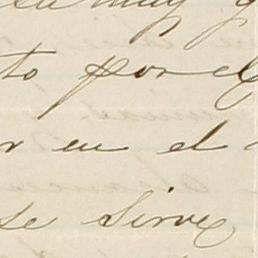 su muy
to por el
r en el
se sirve